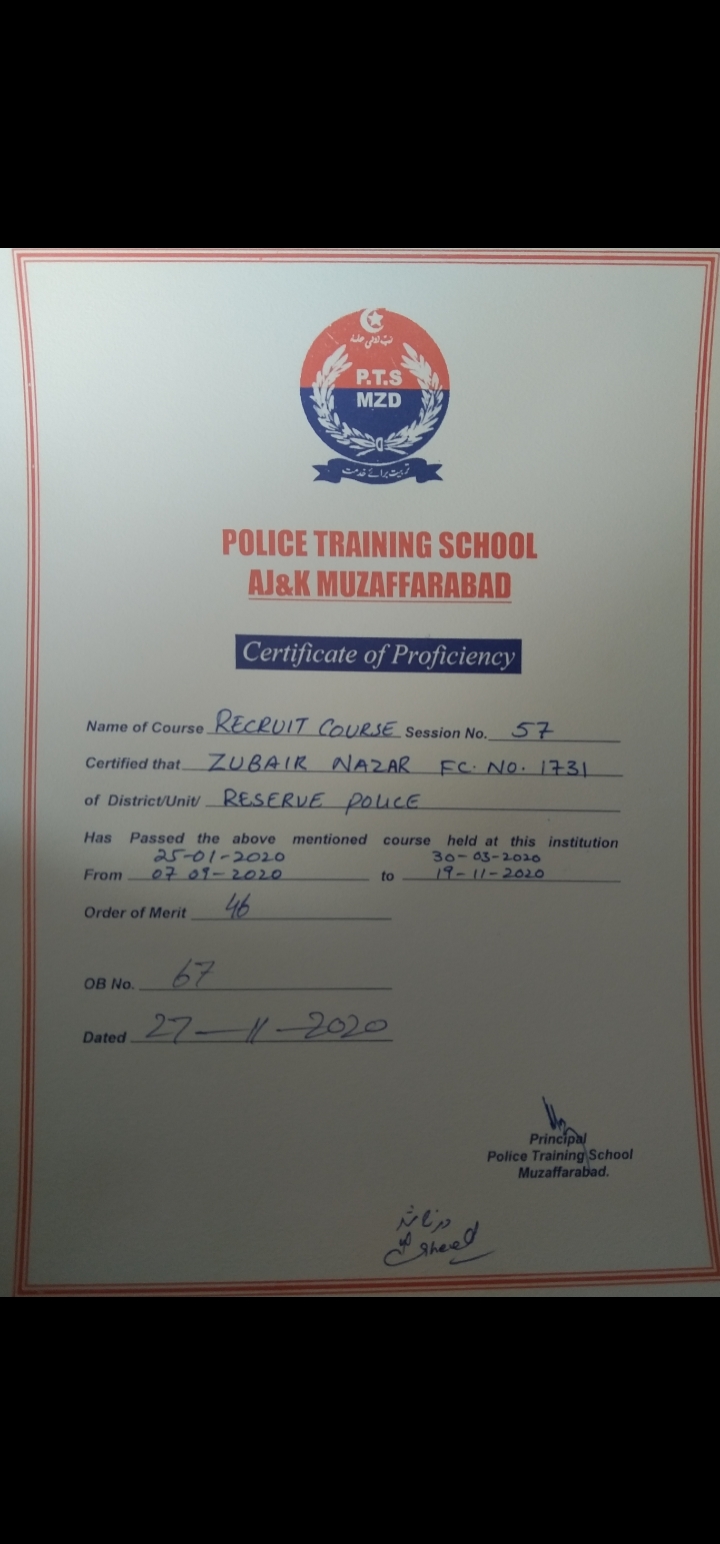 P.T.S
MZD
تربیت برائے خدمت
POLICE TRAINING SCHOOL
AJ&K MUZAFFARABAD
Certificate of Proficiency
Name of Course RECRUIT COURSE Session No. 57
Certified that ZUBAIR NAZAR FC. NO. 1731
of District/Unit/ RESERVE POLICE
Has Passed the above mentioned course held at this institution
25-01-2020 30-03-2020
From 07 09-2020 to 19-11-2020
Order of Merit 46
OB No. 67
Dated 27-11-2020
Principal
Police Training School
Muzaffarabad.